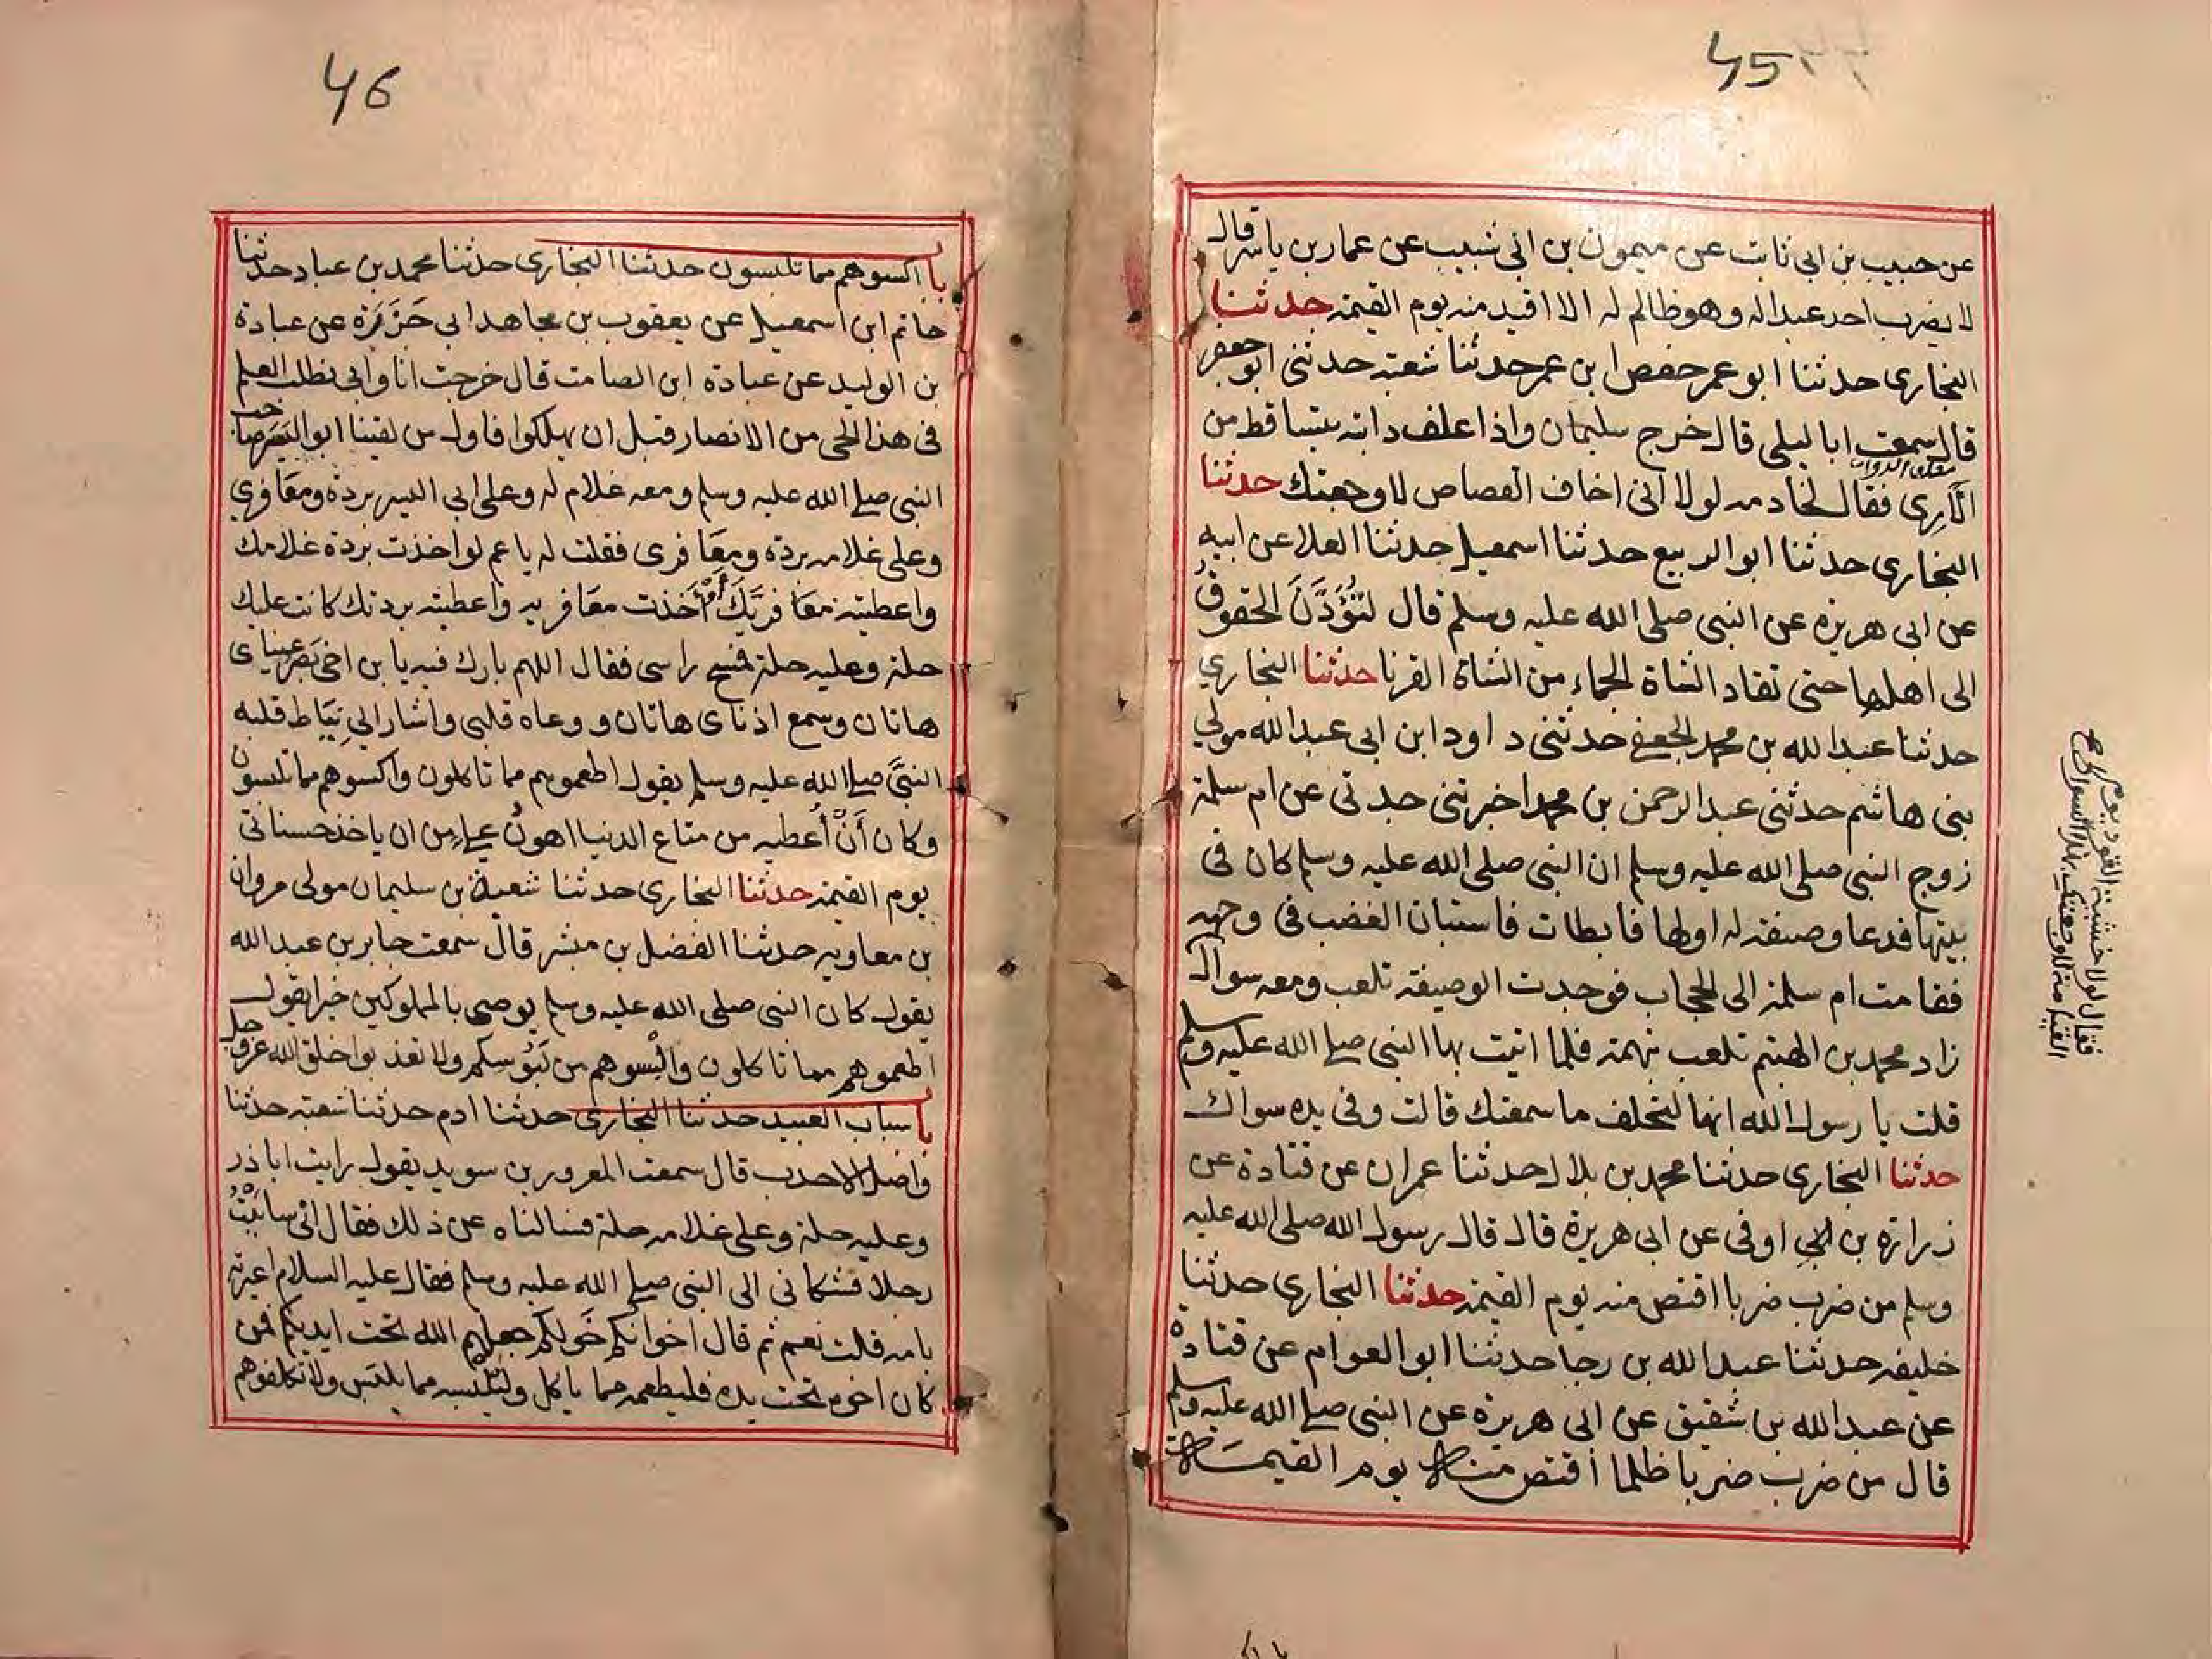 45
عن حبيب بن ابى ثابت عن ميمون بن ابى شبيب عن عمار بن ياسر قال
لا يضرب احد عبدا له وهو ظالم له الا اقيد منه يوم القيمة حدثنا
البخارى حدثنا ابو عمر حفص ابن عمر حدثنا شعبة حدثنى ابو جعفر
قال سمعت ابا ليلى قال خرج سليمان واذا علف دابته يتساقط من
الآرى فقال لخادمه لولا انى اخاف القصاص لاوجعتك حدثنا
البخارى حدثنا ابو الربيع حدثنا اسمعيل حدثنا العلا عن ابيه
عن ابى هريرة عن النبى صلى الله عليه وسلم قال لتؤدن الحقوق
الى اهلها حتى تقاد الشاة الجماء من الشاة القرنا حدثنا البخاري
حدثنا عبد الله بن محمد الجعفى حدثنى داود ابن ابى عبد الله مولي
بنى هاشم حدثنى عبد الرحمن بن محمد اخبرتنى جدتى عن ام سلمة
زوج النبى صلى الله عليه وسلم ان النبى صلى الله عليه وسلم كان فى
بيتها فدعا وصيفة له اولها فابطات فاستبان الغضب فى وجهه
فقامت ام سلمة الى الحجاب فوجدت الوصيفة تلعب ومعه سواك
زاد محمد بن الهيثم تلعب بهمة فلما اتيت بها النبى صلى الله عليه وسلم
قلت يا رسول الله انها لتحلف ما سمعتك قالت وفى يده سواك
حدثنا البخارى حدثنا محمد بن بلال حدثنا عمران عن قتادة عن
زرارة بن ابى اوفى عن ابى هريرة قال قال رسول الله صلى الله عليه
وسلم من ضرب ضربا اقتص منه يوم القيمة حدثنا البخارى حدثنا
خليفه حدثنا عبد الله بن رجا حدثنا ابو العوام عن قتادة
عن عبد الله بن شقيق عن ابى هريرة عن النبى صلى الله عليه وسلم
قال من ضرب ضربا ظلما اقتص منه يوم القيمة
فقال لولا خشية القود يوم
القيامة لاوجعتك بهذا السواك
46
با اكسوهم مما تلبسون حدثنا البخارى حدثنا محمد بن عباد حدثنا
حاتم ابن اسمعيل عن يعقوب بن مجاهد ابى حزرة عن عبادة
بن الوليد عن عبادة ابن الصامت قال خرجت انا وابى نطلب العلم
فى هذا الحى من الانصار قبل ان يهلكوا فاول من لقينا ابو اليسر صاحب
النبى صلى الله عليه وسلم ومعه غلام له وعلى ابى اليسر بردة ومعافري
وعلى غلامه بردة ومعافرى فقلت له يا عم لو اخذت بردة غلامك
واعطيته معافريك أو أخذت معافريه واعطيته بردتك كانت عليك
حلة وعليه حلة فمسح راسى فقال اللهم بارك فيه يا بن اخى بصر عيناى
هاتان وسمع اذناى هاتان ووعاه قلبى واشار الي نياط قلبه
النبى صلى الله عليه وسلم يقول اطعموهم مما تاكلون واكسوهم مما تلبسون
وكان أن أعطيه من متاع الدنيا اهون على من ان ياخذ حسناتى
يوم القيمة حدثنا البخارى حدثنا شعبة بن سليمان مولى مروان
بن معاويه حدثنا الفضل بن مبشر قال سمعت جابر بن عبد الله
يقول كان النبى صلى الله عليه وسلم يوصى بالمملوكين خيرا يقول
اطعموهم مما تاكلون والبسوهم من لبوسكم ولا تعذبوا خلق الله عز وجل
با سباب العبيد حدثنا البخارى حدثنا ادم حدثنا شعبة حدثنا
واصل الاحدب قال سمعت المعرور بن سويد يقول رايت ابا ذر
وعليه حلة وعلى غلامه حلة فسالناه عن ذلك فقال انى ساببت
رجلا فشكانى الى النبى صلى الله عليه وسلم فقال عليه السلام اعيرته
بامه قلت نعم ثم قال اخوانكم خولكم جعلهم الله تحت ايديكم فمن
كان اخوه تحت يده فليطعمه مما ياكل وليلبسه مما يلبس ولا تكلفوهم